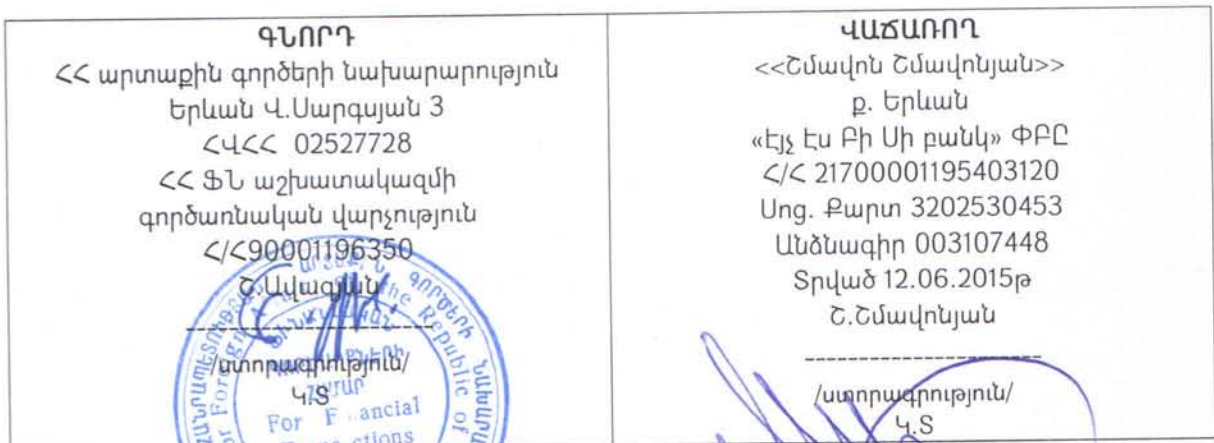 ԳՆՈՐԴ
ՀՀ արտաքին գործերի նախարարություն
Երևան Վ.Սարգսյան 3
ՀՎՀՀ 02527728
ՀՀ ՖՆ աշխատակազմի
գործառնական վարչություն
Հ/Հ90001196350
Շ.Ավագյան
/ստորագրություն/
Կ.Տ
For
ՎԱՃԱՌՈՂ
<<Շմավոն Շմավոնյան>>
ք. Երևան
«Էյչ Էս Բի Սի բանկ» ՓԲԸ
Հ/Հ 21700001195403120
Սոց. Քարտ 3202530453
Անձնագիր 003107448
Տրված 12.06.2015թ
Շ.Շմավոնյան
/ստորագրություն/
Կ.Տ